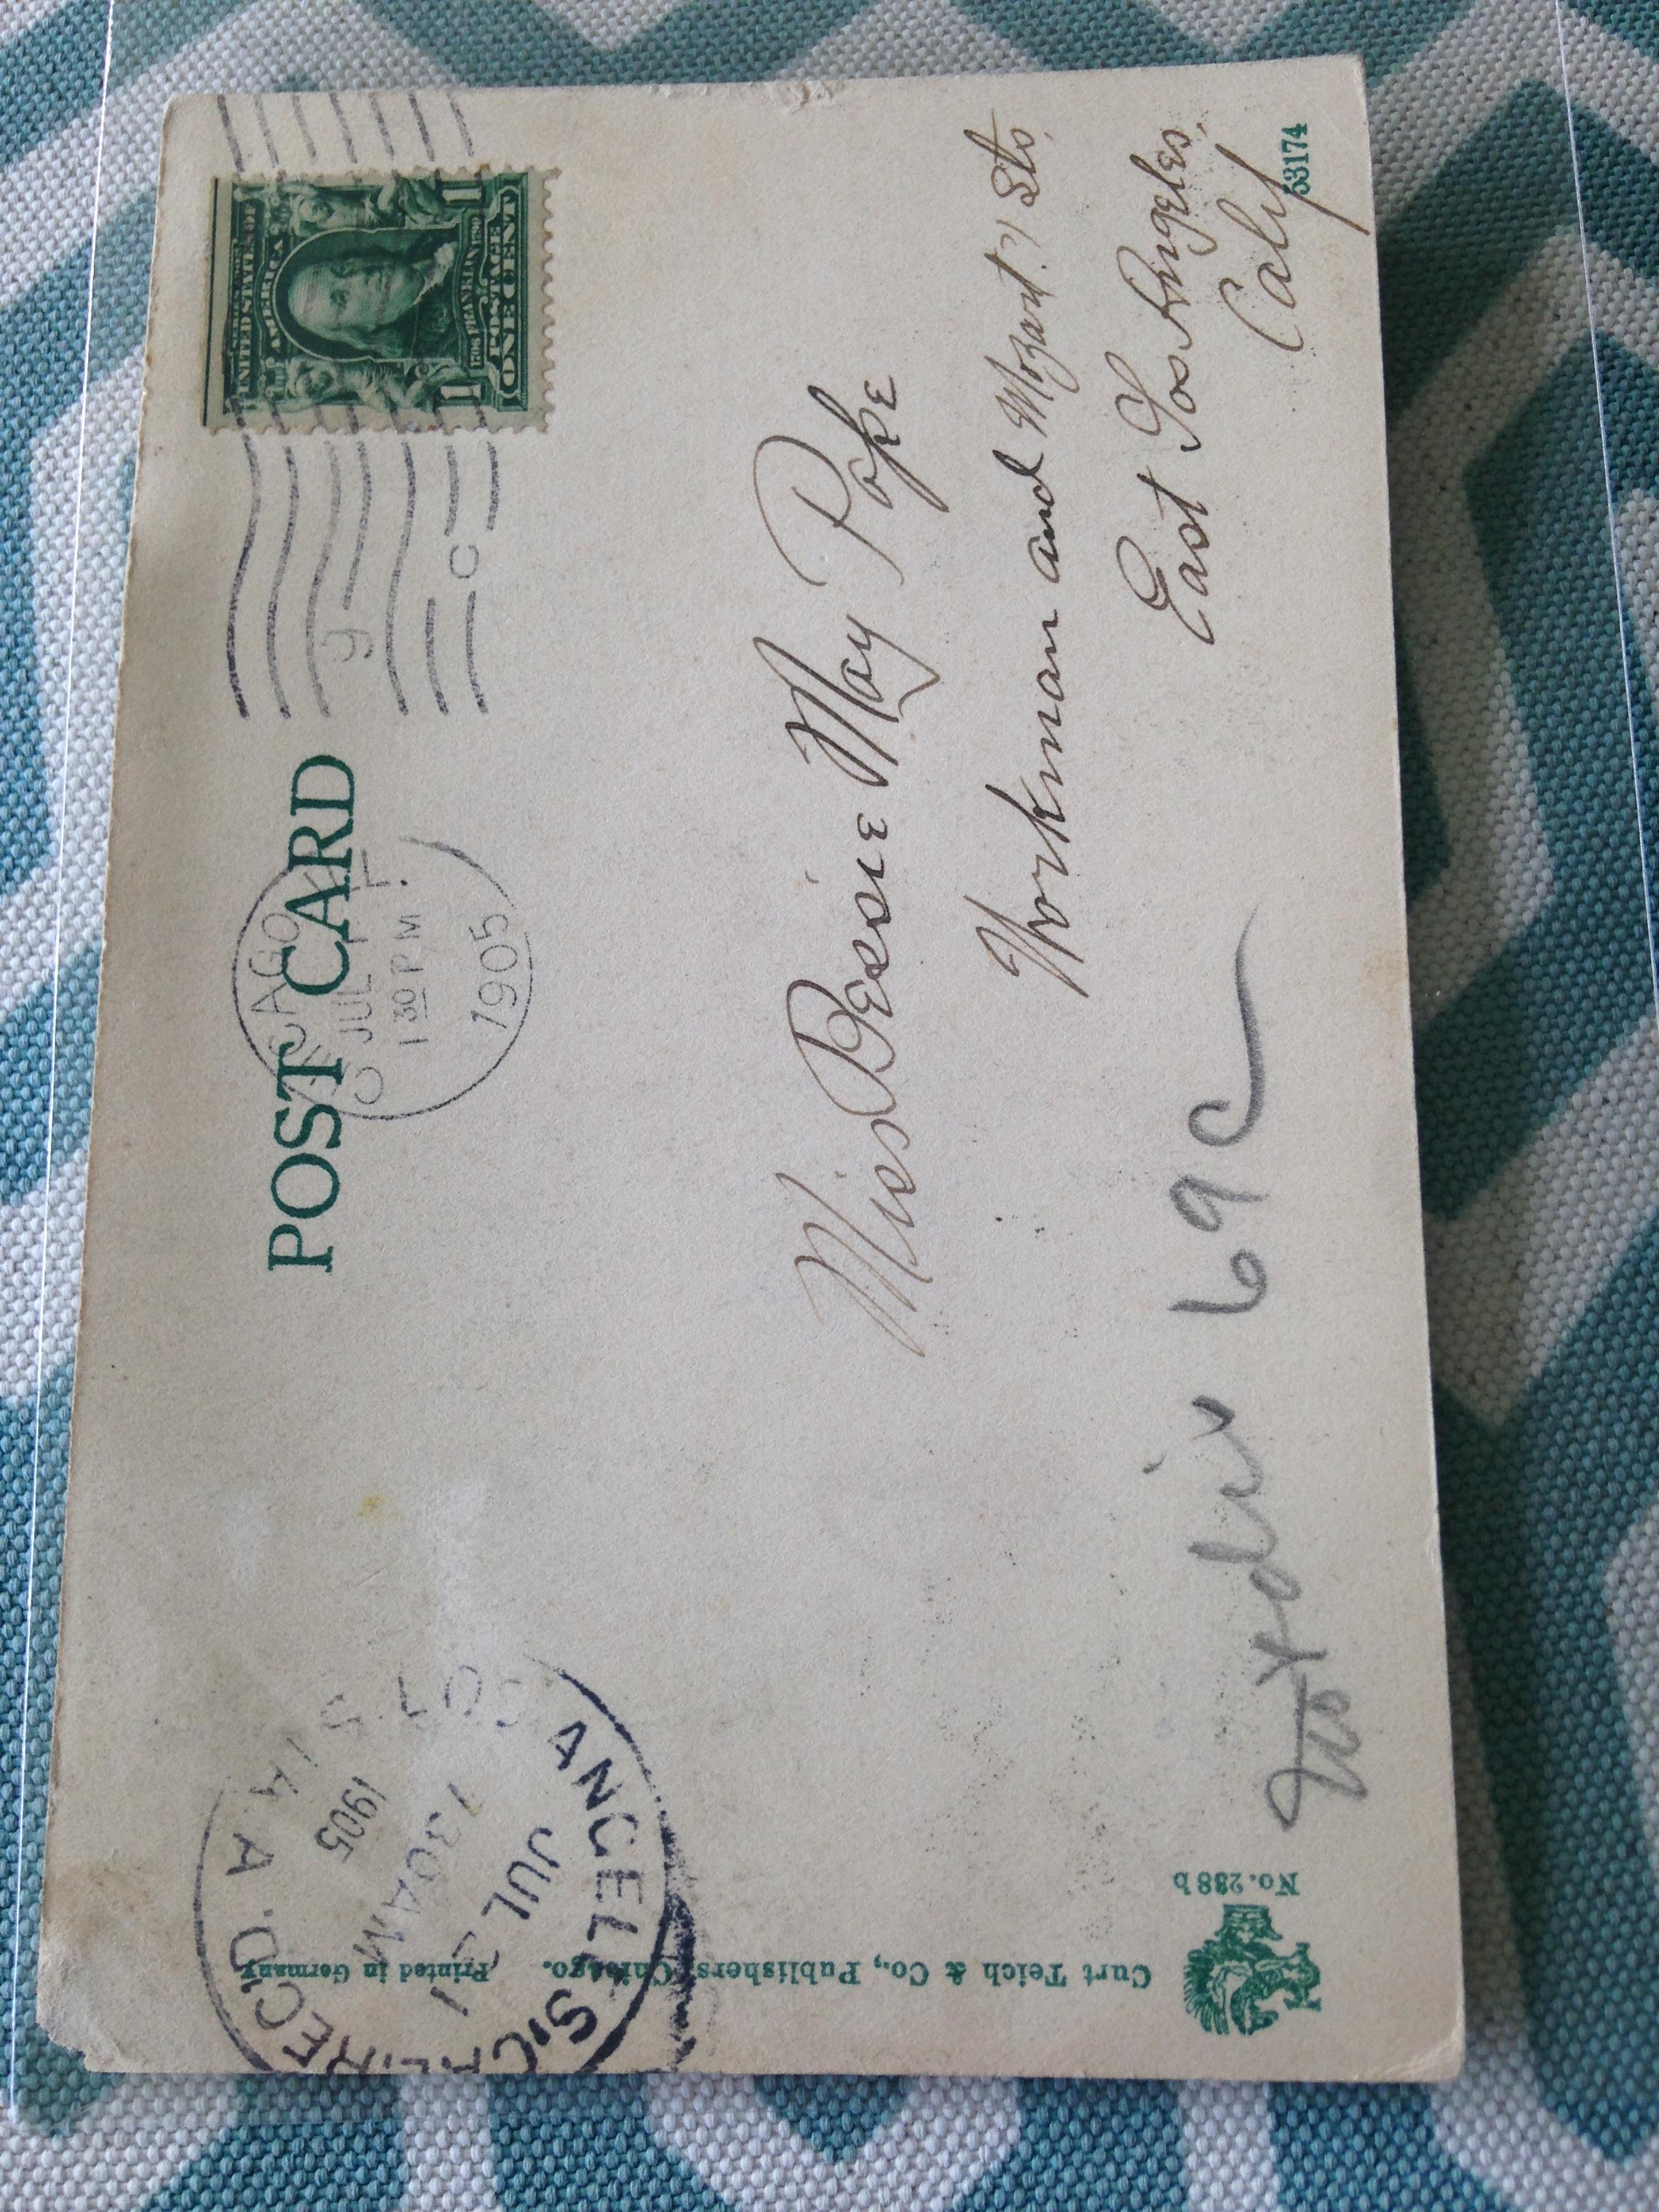 POST CARD
CHICAGO
JUL
1 30 PM
1905
9
C
SERIES 1902
UNITED STATES OF
AMERICA
1706 FRANKLIN 1790
POSTAGE
1 ONE CENT 1
Miss Bessie May Pope
Workman and Mozart Sts.
East Los Angeles,
Calif
53174
69c
ANGELES, CAL.
REC'D.
JUL 31
1 30 AM
1905
No. 288 b
Curt Teich & Co., Publishers, Chicago.
Printed in Germany